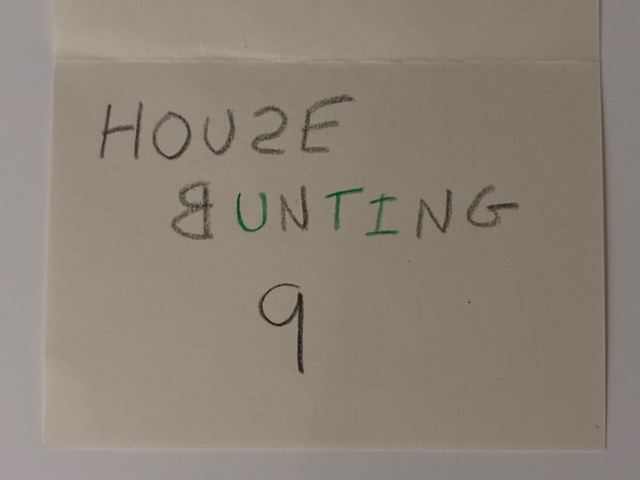 HOUSE
BUNTING
9